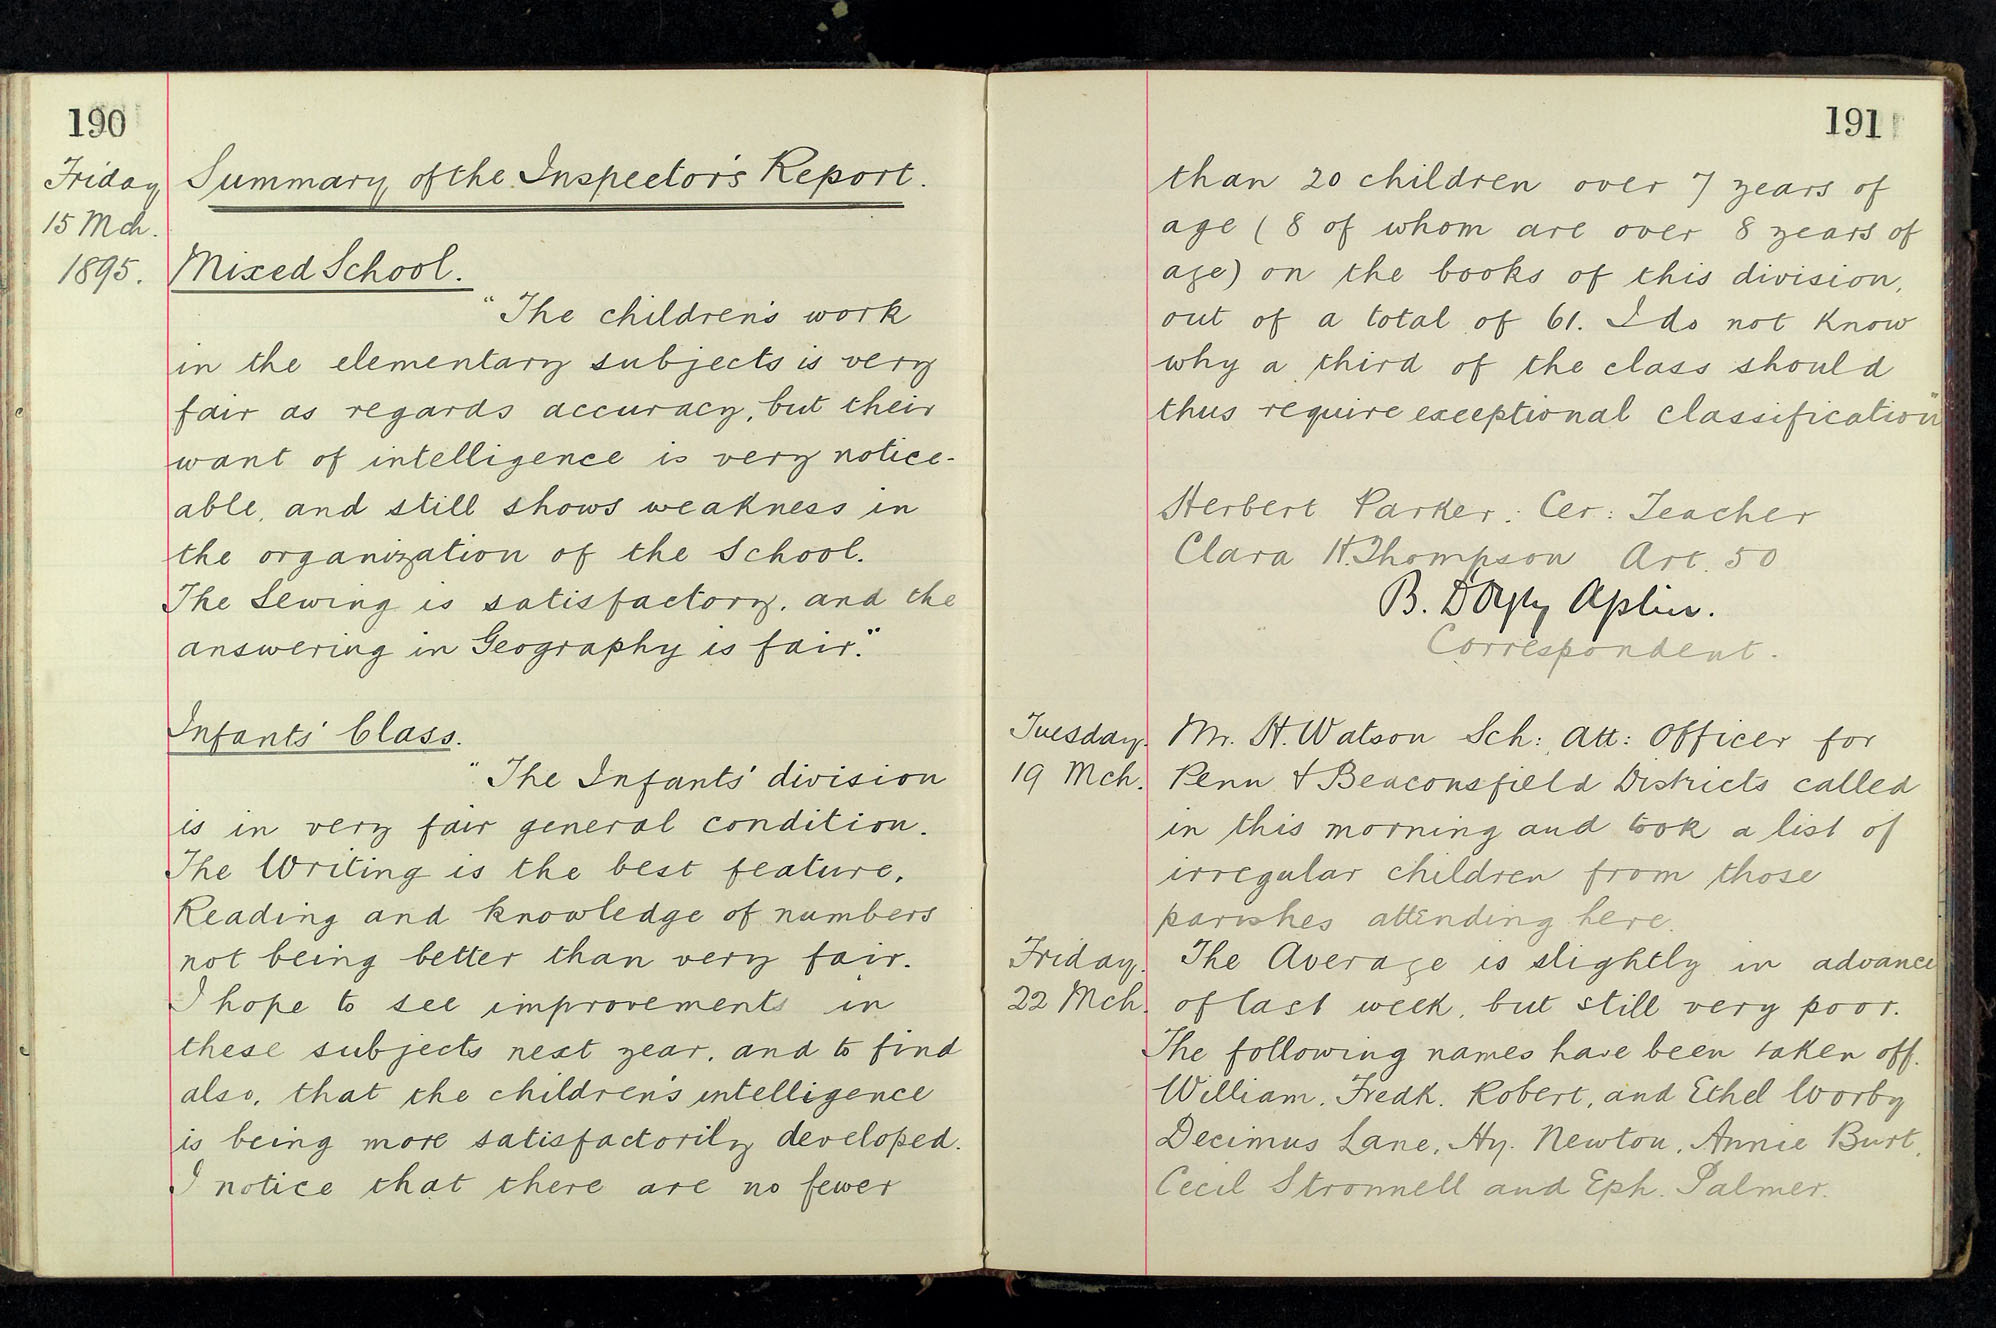 190
Friday Summary of the Inspector's Report.
15 Mch.
1895. Mixed School.
"The children's work
in the elementary subjects is very
fair as regards accuracy, but their
want of intelligence is very notice-
able, and still shows weakness in
the organization of the School.
The Sewing is satisfactory, and the
answering in Geography is fair."
Infants' Class.
"The Infants' division
is in very fair general condition.
The Writing is the best feature,
Reading and knowledge of numbers
not being better than very fair.
I hope to see improvements in
these subjects next year, and to find
also, that the children's intelligence
is being more satisfactorily developed.
I notice that there are no fewer
191
than 20 children over 7 years of
age (8 of whom are over 8 years of
age) on the books of this division,
out of a total of 61. I do not know
why a third of the class should
thus require exceptional classification"
Herbert Parker: Cer: Teacher
Clara H. Thompson Art. 50
B. D'Oyly Aplin.
Correspondent.
Tuesday. Mr. H. Watson Sch: Att: Officer for
19 Mch. Penn & Beaconsfield Districts called
in this morning and took a list of
irregular children from those
parishes attending here.
Friday. The Average is slightly in advance
22 Mch. of last week, but still very poor.
The following names have been taken off.
William, Fredk. Robert, and Ethel Worby
Decimus Lane, Hy. Newton, Annie Burt,
Cecil Stronnell and Eph. Palmer.